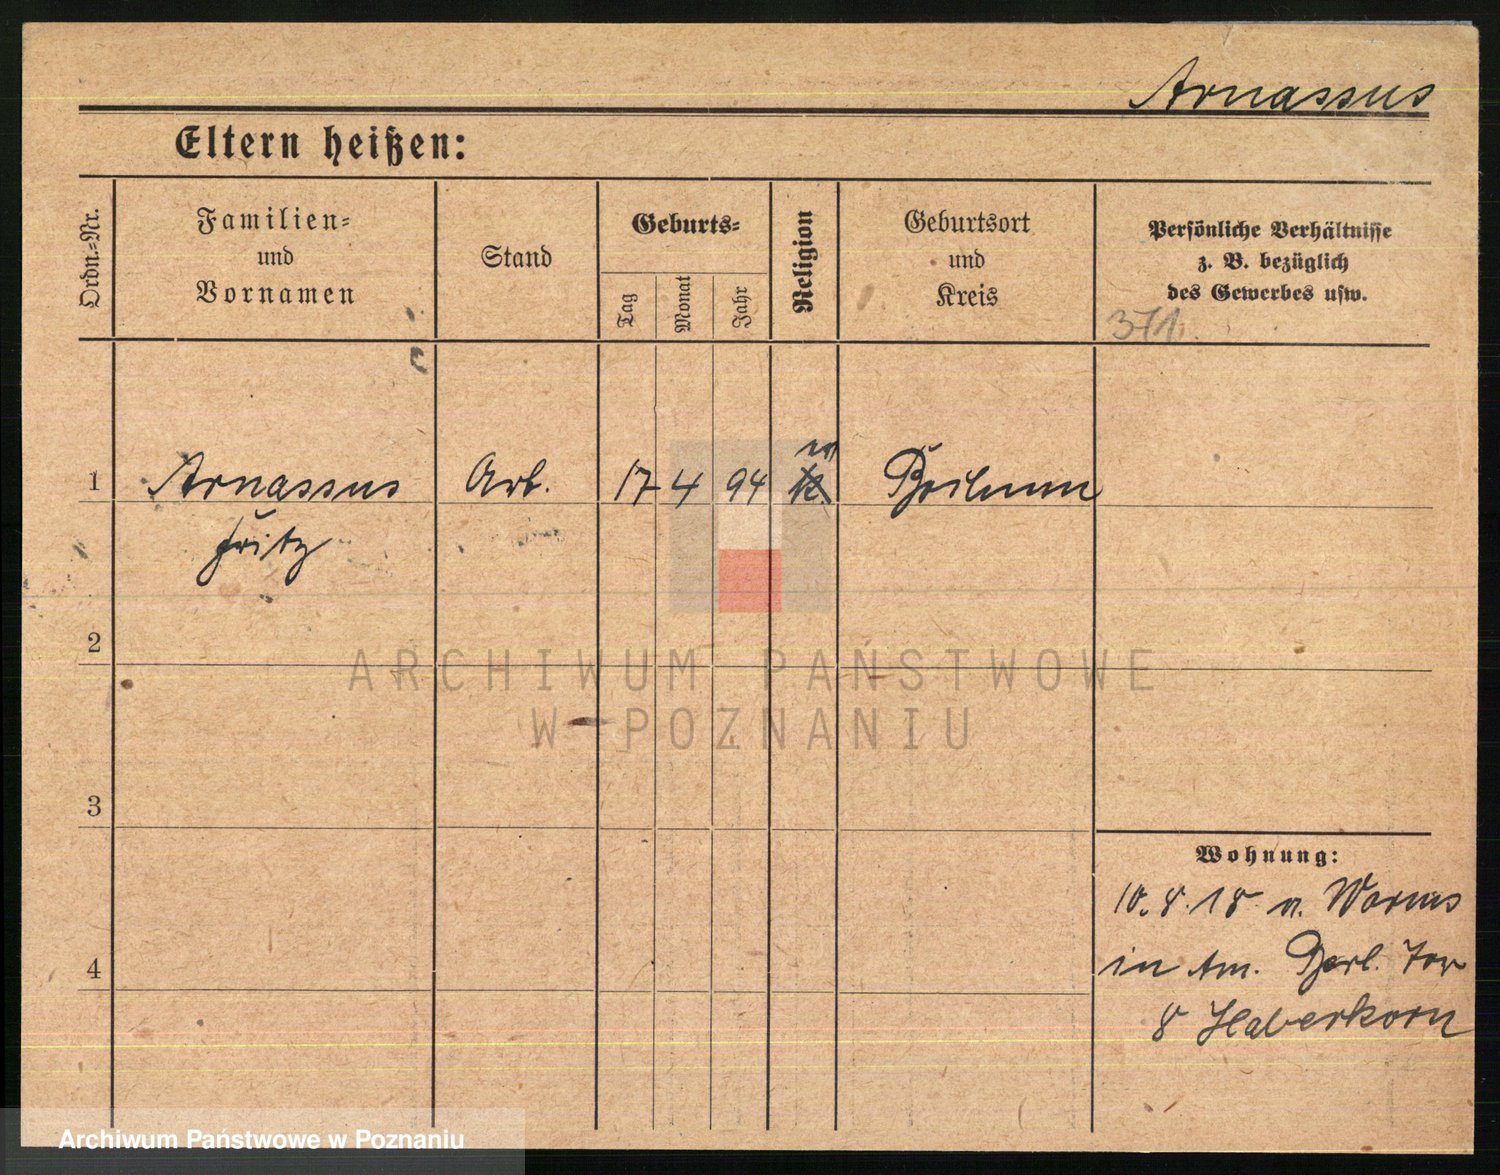 Arnassus
Eltern heißen:
Ordn.-Nr.
Familien-
und
Vornamen
Stand
Geburts-
Tag
Monat
Jahr
Religion
Geburtsort
und
Kreis
Persönliche Verhältnisse
z. B. bezüglich
des Gewerbes usw.
371.
1
Arnassus
Fritz
Arb.
17
4
94
k
Bochum
2
3
4
Wohnung:
10.8.18 n. Worms
in Am. Berl. Tor
8 Haberkorn
ARCHIWUM PANSTWOWE
W POZNANIU
Archiwum Państwowe w Poznaniu